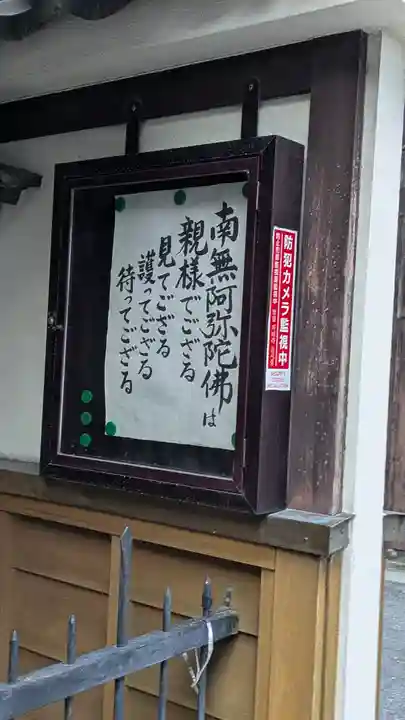 南無阿弥陀佛は
親様でござる
見てござる
護ってござる
待ってござる
防犯カメラ監視中